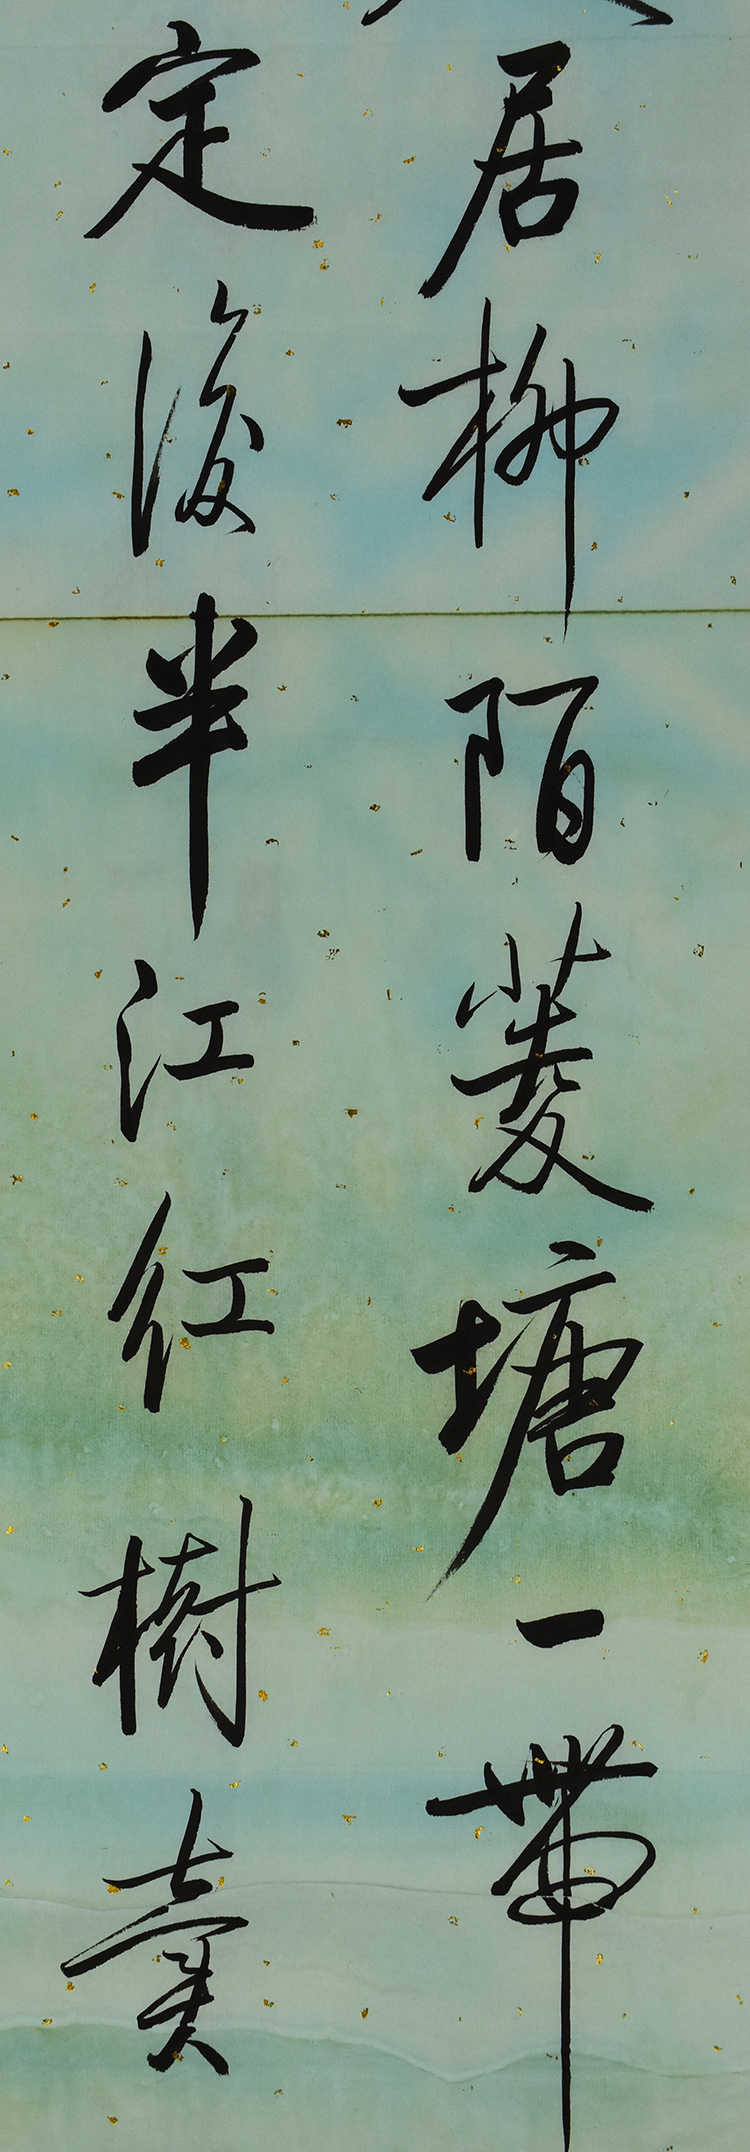 居柳陌菱塘一帶
定後半江紅樹賣